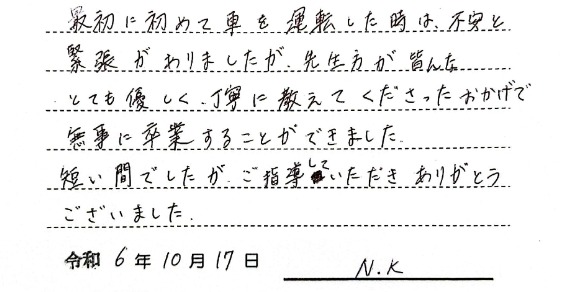 最初に初めて車を運転した時は、不安と
緊張がありましたが、先生方が皆んな
とても優しく、丁寧に教えてくださったおかげで
無事に卒業することができました。
短い間でしたが、ご指導していただきありがとう
ございました。
令和 6年 10月 17日 N.K